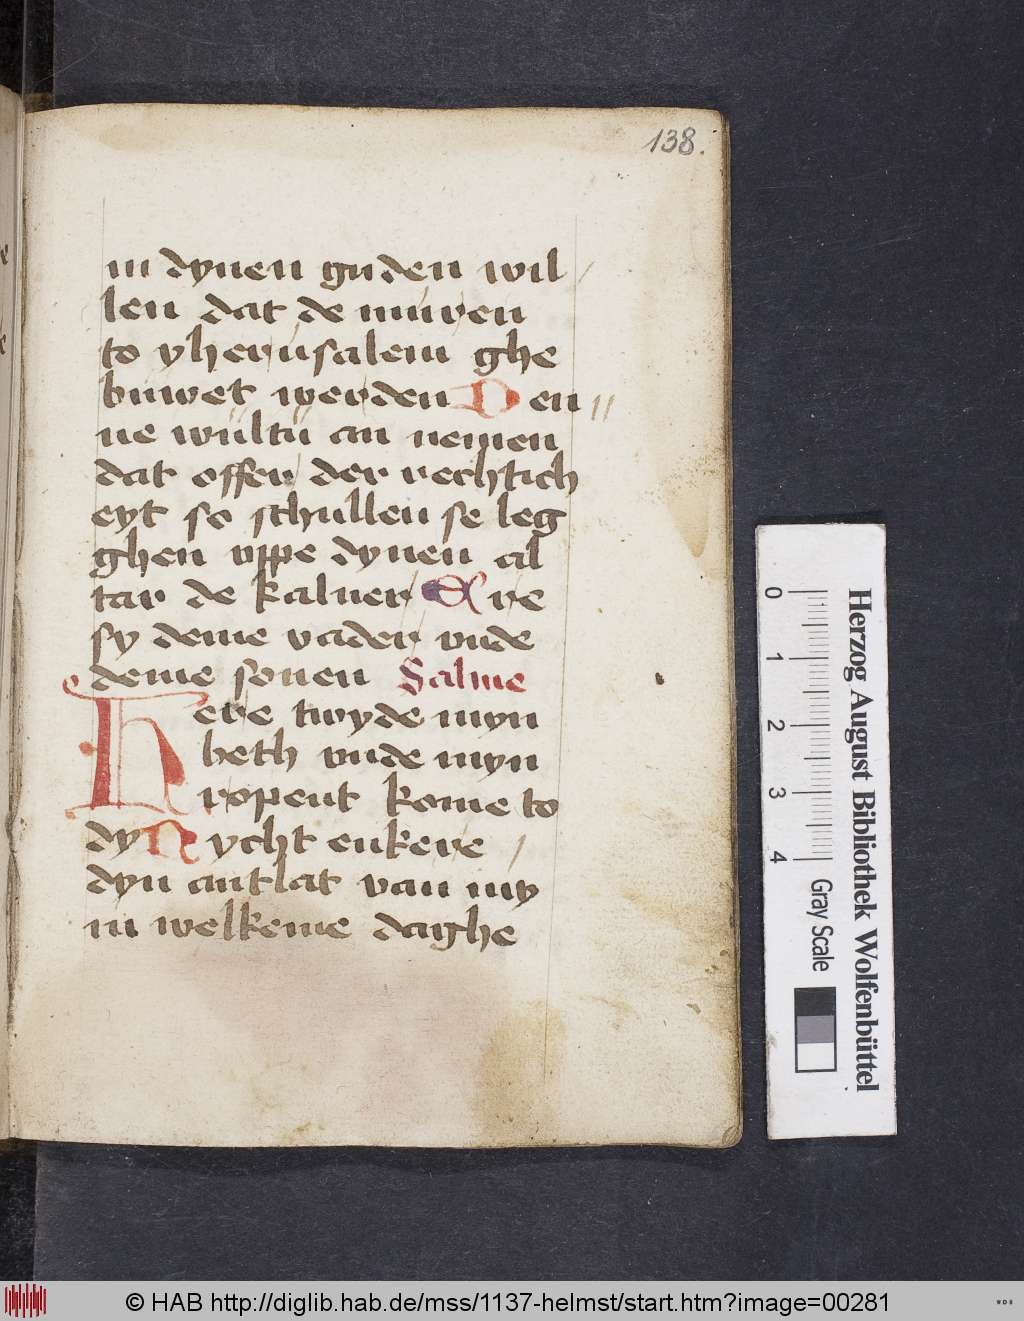 138.
in dynen guden wil
len dat de muren
to yherusalem ghe
buwet werden Den
ne wultu an nemen
dat offer der rechtich
eyt so schullen se leg
ghen vppe dynen al
tar de kaluer Ere
sy deme vader vnde
deme sonen Salme
Here twyde myn
beth vnde myn
ropent kome to
dy Nycht enkere
dyn antlat van my
in welkeme daghe
0 1 2 3 4
Gray Scale
Herzog August Bibliothek Wolfenbüttel
© HAB http://diglib.hab.de/mss/1137-helmst/start.htm?image=00281